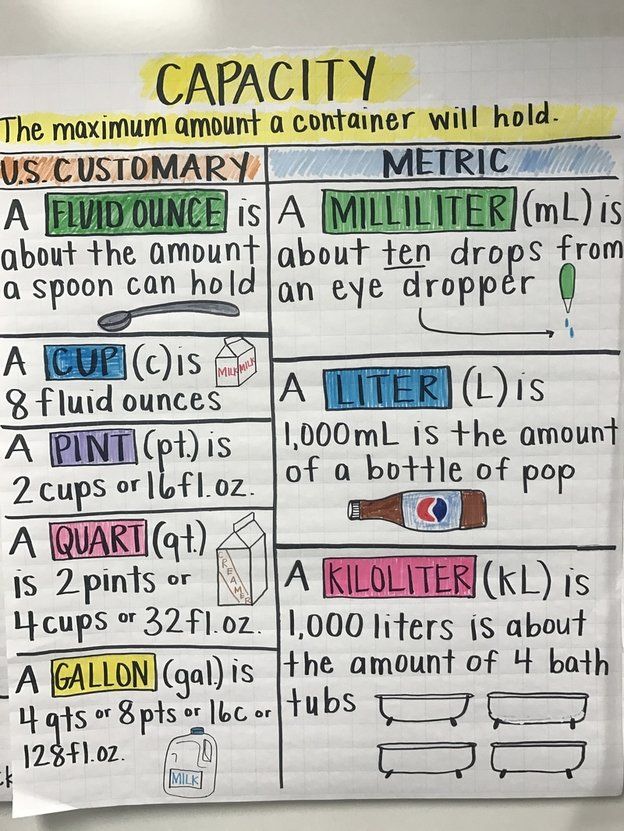 CAPACITY
The maximum amount a container will hold.
U.S. CUSTOMARY
A FLUID OUNCE is
about the amount
a spoon can hold
A CUP (c) is
MILK MILK
8 fluid ounces
A PINT (pt.) is
2 cups or 16 fl. oz.
A QUART (qt.)
is 2 pints or
CREAMER
4 cups or 32 fl. oz.
A GALLON (gal.) is
4 qts or 8 pts or 16c or
128 fl. oz.
MILK
METRIC
A MILLILITER (mL) is
about ten drops from
an eye dropper
A LITER (L) is
1,000 mL is the amount
of a bottle of pop
A KILOLITER (kL) is
1,000 liters is about
the amount of 4 bath
tubs